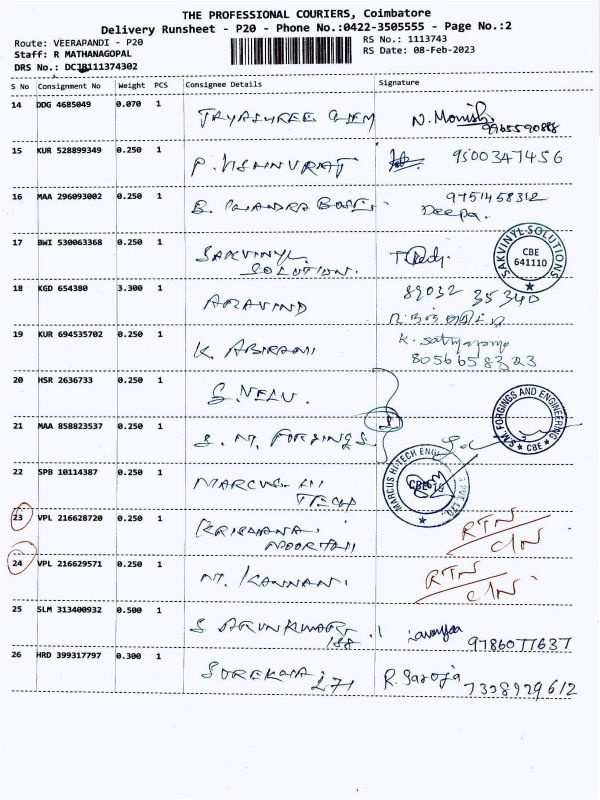 THE PROFESSIONAL COURIERS, Coimbatore
Delivery Runsheet - P20 - Phone No.:0422-3505555 - Page No.:2
Route: VEERAPANDI - P20
RS No.: 1113743
Staff: R MATHANAGOPAL
RS Date: 08-Feb-2023
DRS No.: DCJB111374302
S No Consignment No Weight PCS Consignee Details Signature
14 DDG 4685049 0.070 1 JAYASHREE CHEM N. Monish
9965590888
15 KUR 528899349 0.250 1 P. 9500347456
16 MAA 296093002 0.250 1 B. CHANDRA BOSE 9751458312
Deepa.
17 BWI 530063368 0.250 1 SAKVINYL
SOLUTION.
SAKVINYL SOLUTIONS
CBE
641110
18 KGD 654380 3.300 1 ARAVIND 89032 35340
19 KUR 694535702 0.250 1 K. ABIRAMI K. Sathyapama
8056658323
20 HSR 2636733 0.250 1 S NELU.
21 MAA 858823537 0.250 1 S. M. FORGINGS
S.M. FORGINGS AND ENGINEERING
CBE
22 SPB 10114387 0.250 1 MARCUS HI
TECH
MARCUS HI-TECH ENGG PVT. LTD.
23 VPL 216628720 0.250 1 KRISHANA
MOORTHI
RTN
C/N
24 VPL 216629571 0.250 1 M. KANNAN. RTN
C/N
25 SLM 313400932 0.500 1 S ARUNKUMAR
188
9786077637
26 HRD 399317797 0.300 1 SUREKHA
171
R. Saroja
7338929612